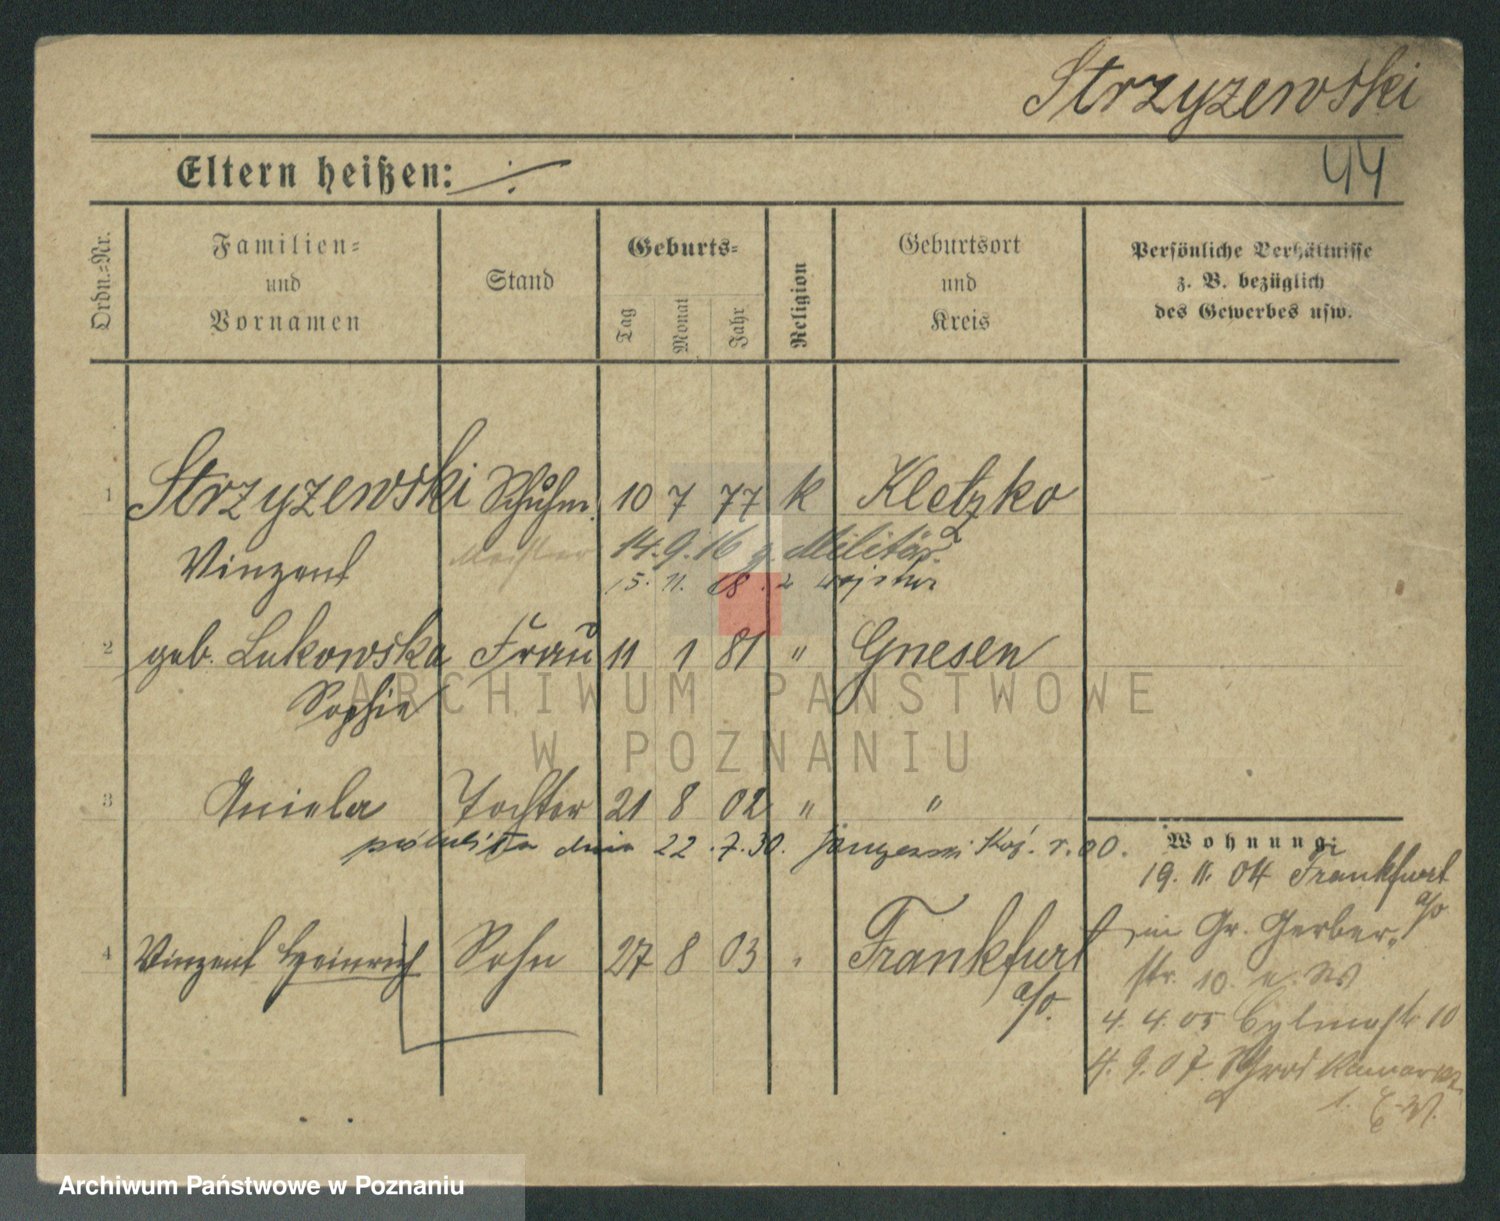 Strzyzewski
Eltern heißen: ⁒
44
Ordn.-Nr.
Familien-
und
Vornamen
Stand
Geburts-
Tag
Monat
Jahr
Religion
Geburtsort
und
Kreis
Persönliche Verhältnisse
z. B. bezüglich
des Gewerbes usw.
1 Strzyzewski Schuhm. 10 7 77 k Kletzko
Meister 14.9.16 z. Militär
Vinzent 15. 11. 18. z wojska
2 geb. Lukowska Frau 11 1 81 " Gnesen
Sophie
3 Aniela Tochter 21 8 02 " "
poślubiła dnia 22.7.30.
Wohnung:
19. 11. 04 Frankfurt
a/o
4 Vinzent Heinrich Sohn 27 8 03 " Frankfurt
a/o.
in Gr. Gerber-
str. 10
4. 4. 05 10
4. 9. 07.
ARCHIWUM PAŃSTWOWE
W POZNANIU
Archiwum Państwowe w Poznaniu